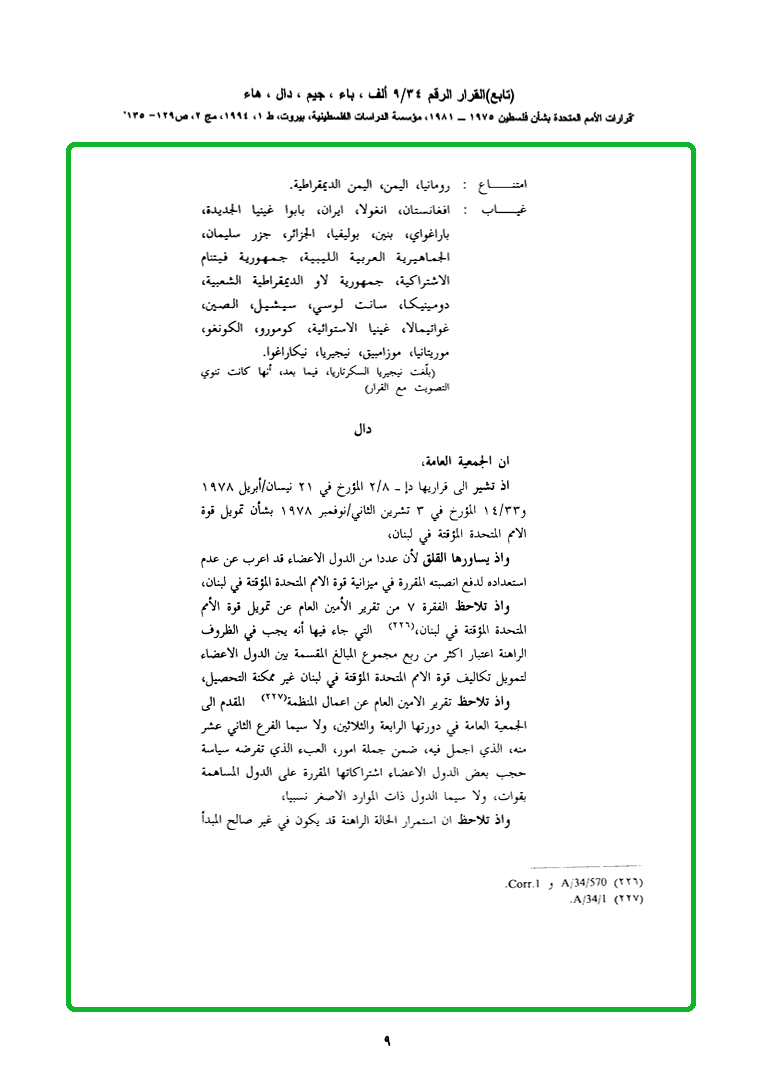 (تابع)القرار الرقم ٩/٣٤ ألف ، باء ، جيم ، دال ، هاء
"قرارات الأمم المتحدة بشأن فلسطين ١٩٧٥ ــ ١٩٨١، مؤسسة الدراسات الفلسطينية، بيروت، ط ١، ١٩٩٤، مج ٢، ص١٢٩- ١٣٥"
امتنـــــاع : رومانيا، اليمن، اليمن الديمقراطية.
غيـــــاب : افغانستان، انغولا، ايران، بابوا غينيا الجديدة،
باراغواي، بنين، بوليفيا، الجزائر، جزر سليمان،
الجماهيرية العربية الليبية، جمهورية فيتنام
الاشتراكية، جمهورية لاو الديمقراطية الشعبية،
دومينيكا، سانت لوسي، سيشيل، الصين،
غواتيمالا، غينيا الاستوائية، كومورو، الكونغو،
موريتانيا، موزامبيق، نيجيريا، نيكاراغوا.
(بلّغت نيجيريا السكرتاريا، فيما بعد، أنها كانت تنوي
التصويت مع القرار)
دال
ان الجمعية العامة،
اذ تشير الى قراريها دإ ــ ٢/٨ المؤرخ في ٢١ نيسان/أبريل ١٩٧٨
و١٤/٣٣ المؤرخ في ٣ تشرين الثاني/نوفمبر ١٩٧٨ بشأن تمويل قوة
الامم المتحدة المؤقتة في لبنان،
واذ يساورها القلق لأن عددا من الدول الاعضاء قد اعرب عن عدم
استعداده لدفع انصبته المقررة في ميزانية قوة الامم المتحدة المؤقتة في لبنان،
واذ تلاحظ الفقرة ٧ من تقرير الأمين العام عن تمويل قوة الأمم
المتحدة المؤقتة في لبنان،(٢٢٦) التي جاء فيها أنه يجب في الظروف
الراهنة اعتبار اكثر من ربع مجموع المبالغ المقسمة بين الدول الاعضاء
لتمويل تكاليف قوة الامم المتحدة المؤقتة في لبنان غير ممكنة التحصيل،
واذ تلاحظ تقرير الامين العام عن اعمال المنظمة(٢٢٧) المقدم الى
الجمعية العامة في دورتها الرابعة والثلاثين، ولا سيما الفرع الثاني عشر
منه، الذي اجمل فيه، ضمن جملة امور، العبء الذي تفرضه سياسة
حجب بعض الدول الاعضاء اشتراكاتها المقررة على الدول المساهمة
بقوات، ولا سيما الدول ذات الموارد الاصغر نسبيا،
واذ تلاحظ ان استمرار الحالة الراهنة قد يكون في غير صالح المبدأ
(٢٢٦) A/34/570 و Corr.1.
(٢٢٧) A/34/1.
٩